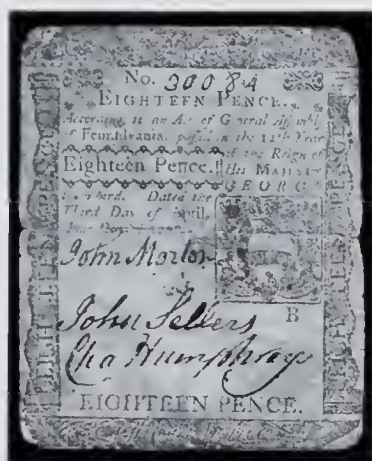 No. 30084
EIGHTEEN PENCE.
According to an Act of General Assembly
of Pennsylvania, passed in the 12th Year
of the Reign of
Eighteen Pence. His MAJESTY
GEORGE
Dated the
Third Day of April,
John Morton
B
John Sellers
Cha Humphreys
EIGHTEEN PENCE.